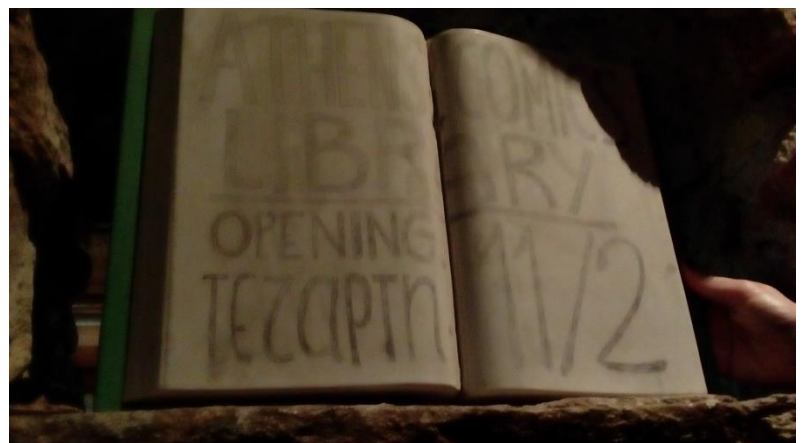 ATHENS COMICS
LIBRARY
OPENING
ΤΕταΡΤη 11/2